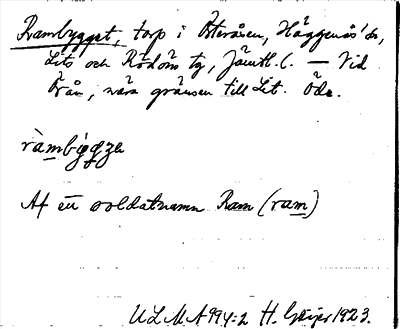 Rambygget, torp i Österåsen, Häggenås' sn,
Lits och Rödöns tg, Jämtl. l. — Vid
Örån, nära gränsen till Lit. Öde.
ràmbýgge
Af ett soldatnamn Ram (ram)
ULMA 994:2 H. Geijer 1923.